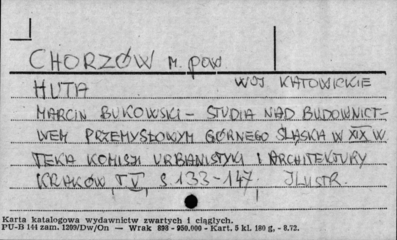 CHORZÓW M. pow
HUTA WOJ KATOWICKIE
MARCIN BUKOWSKI – STUDIA NAD BUDOWNICT-
WEM PRZEMYSŁOWYM GÓRNEGO ŚLĄSKA W XIX W.
TEKA KOMISJI URBANISTYKI I ARCHITEKTURY
KRAKÓW, T V, S. 133-147. ILUSTR.
Karta katalogowa wydawnictw zwartych i ciągłych.
PU-B 144 zam. 1209/Dw/On — Wrak 898 - 950.000 - Kart. 5 kl. 180 g, - 8.72.